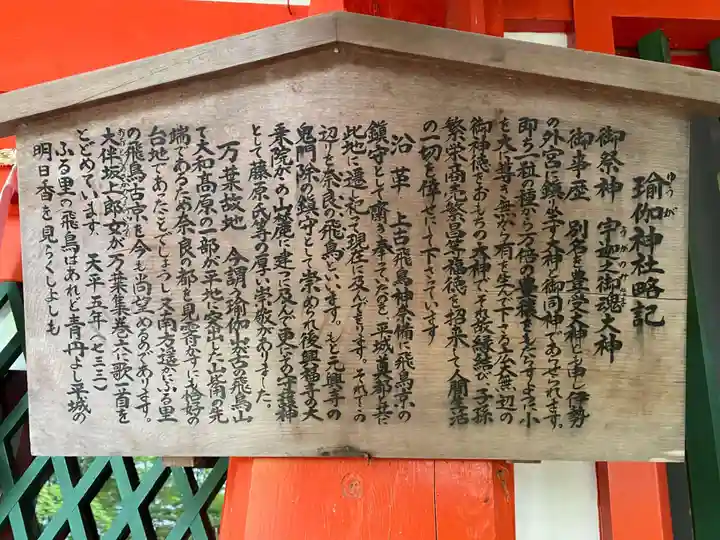 瑜伽神社略記
ゆうが
御祭神 宇迦之御魂大神
うがのみたま
御事歴 別名を豊受大神とも申し伊勢
の外宮に鎮り坐す大神と御同神であらせられます。
即ち一粒の種から万倍の豊穣をもたらすように小
を大に導き無から有を生んで下さる広大無辺の
御神徳をおもちの大神でそれ故縁結び子孫
繁栄商売繁昌等福徳を招来して人間生活
の一切を倖せにして下さいます
沿革 上古飛鳥神奈備に飛鳥京の
鎮守として齋き奉っていたのを平城の奠都と共に
此地に遷し祀って現在に及んでをります。それでこの
辺りを奈良の飛鳥といいます。もと元興寺の
鬼門除の鎮守として崇められ後興福寺の大
乗院がこの山麓に建つに及んで更にその守護神
として藤原氏等の厚い崇敬がありました。
万葉故地 今謂う瑜伽山は古の飛鳥山
で大和高原の一部が平地に突出た山脊の先
端であるため奈良の都を見霽かすにも恰好の
台地であったことでしょうし又南方遥かにふる里
の飛鳥古京を今も尚望めるのであります。
大伴坂上郎女が万葉集巻六に歌一首を
とどめています。 天平五年(七三三)
ふる里の飛鳥はあれど青丹よし平城の
明日香を見らくしよしも